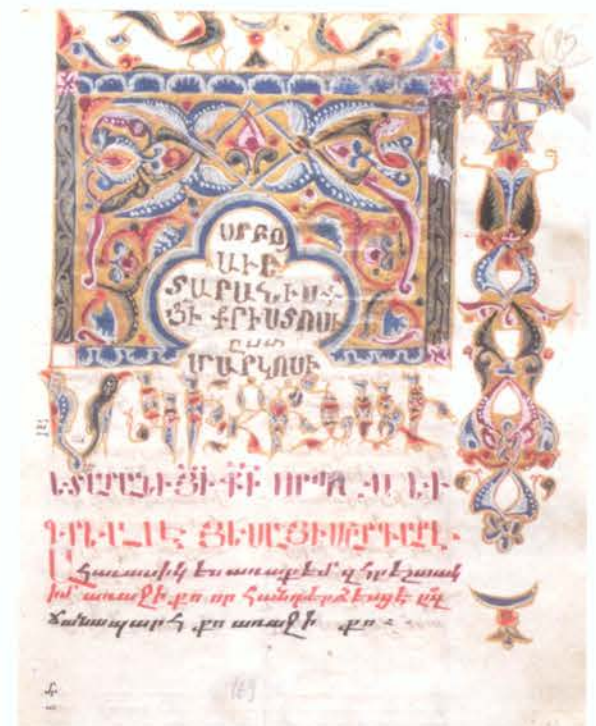 ՍՐԲՈ
ԱՒԵ
ՏԱՐԱՆ.ԻՍ
ՅԻ ՔՐԻՍՏՈՍԻ
ըստ
ՄԱՐԿՈՍԻ
ԵՏԱՐԱՆԻ ՅԻ ՔԻ ՈՐԴՈ ԱՅ
ԳՐԵԱԼ Է ՅԵՍԱՅԻ ՄԱՐԳԱՐԷ.
Ահաւասիկ ես առաքեմ զհրեշտակ
իմ առաջի քո որ հանդերձեսցէ
ճանապարհ քո առաջի քո
169